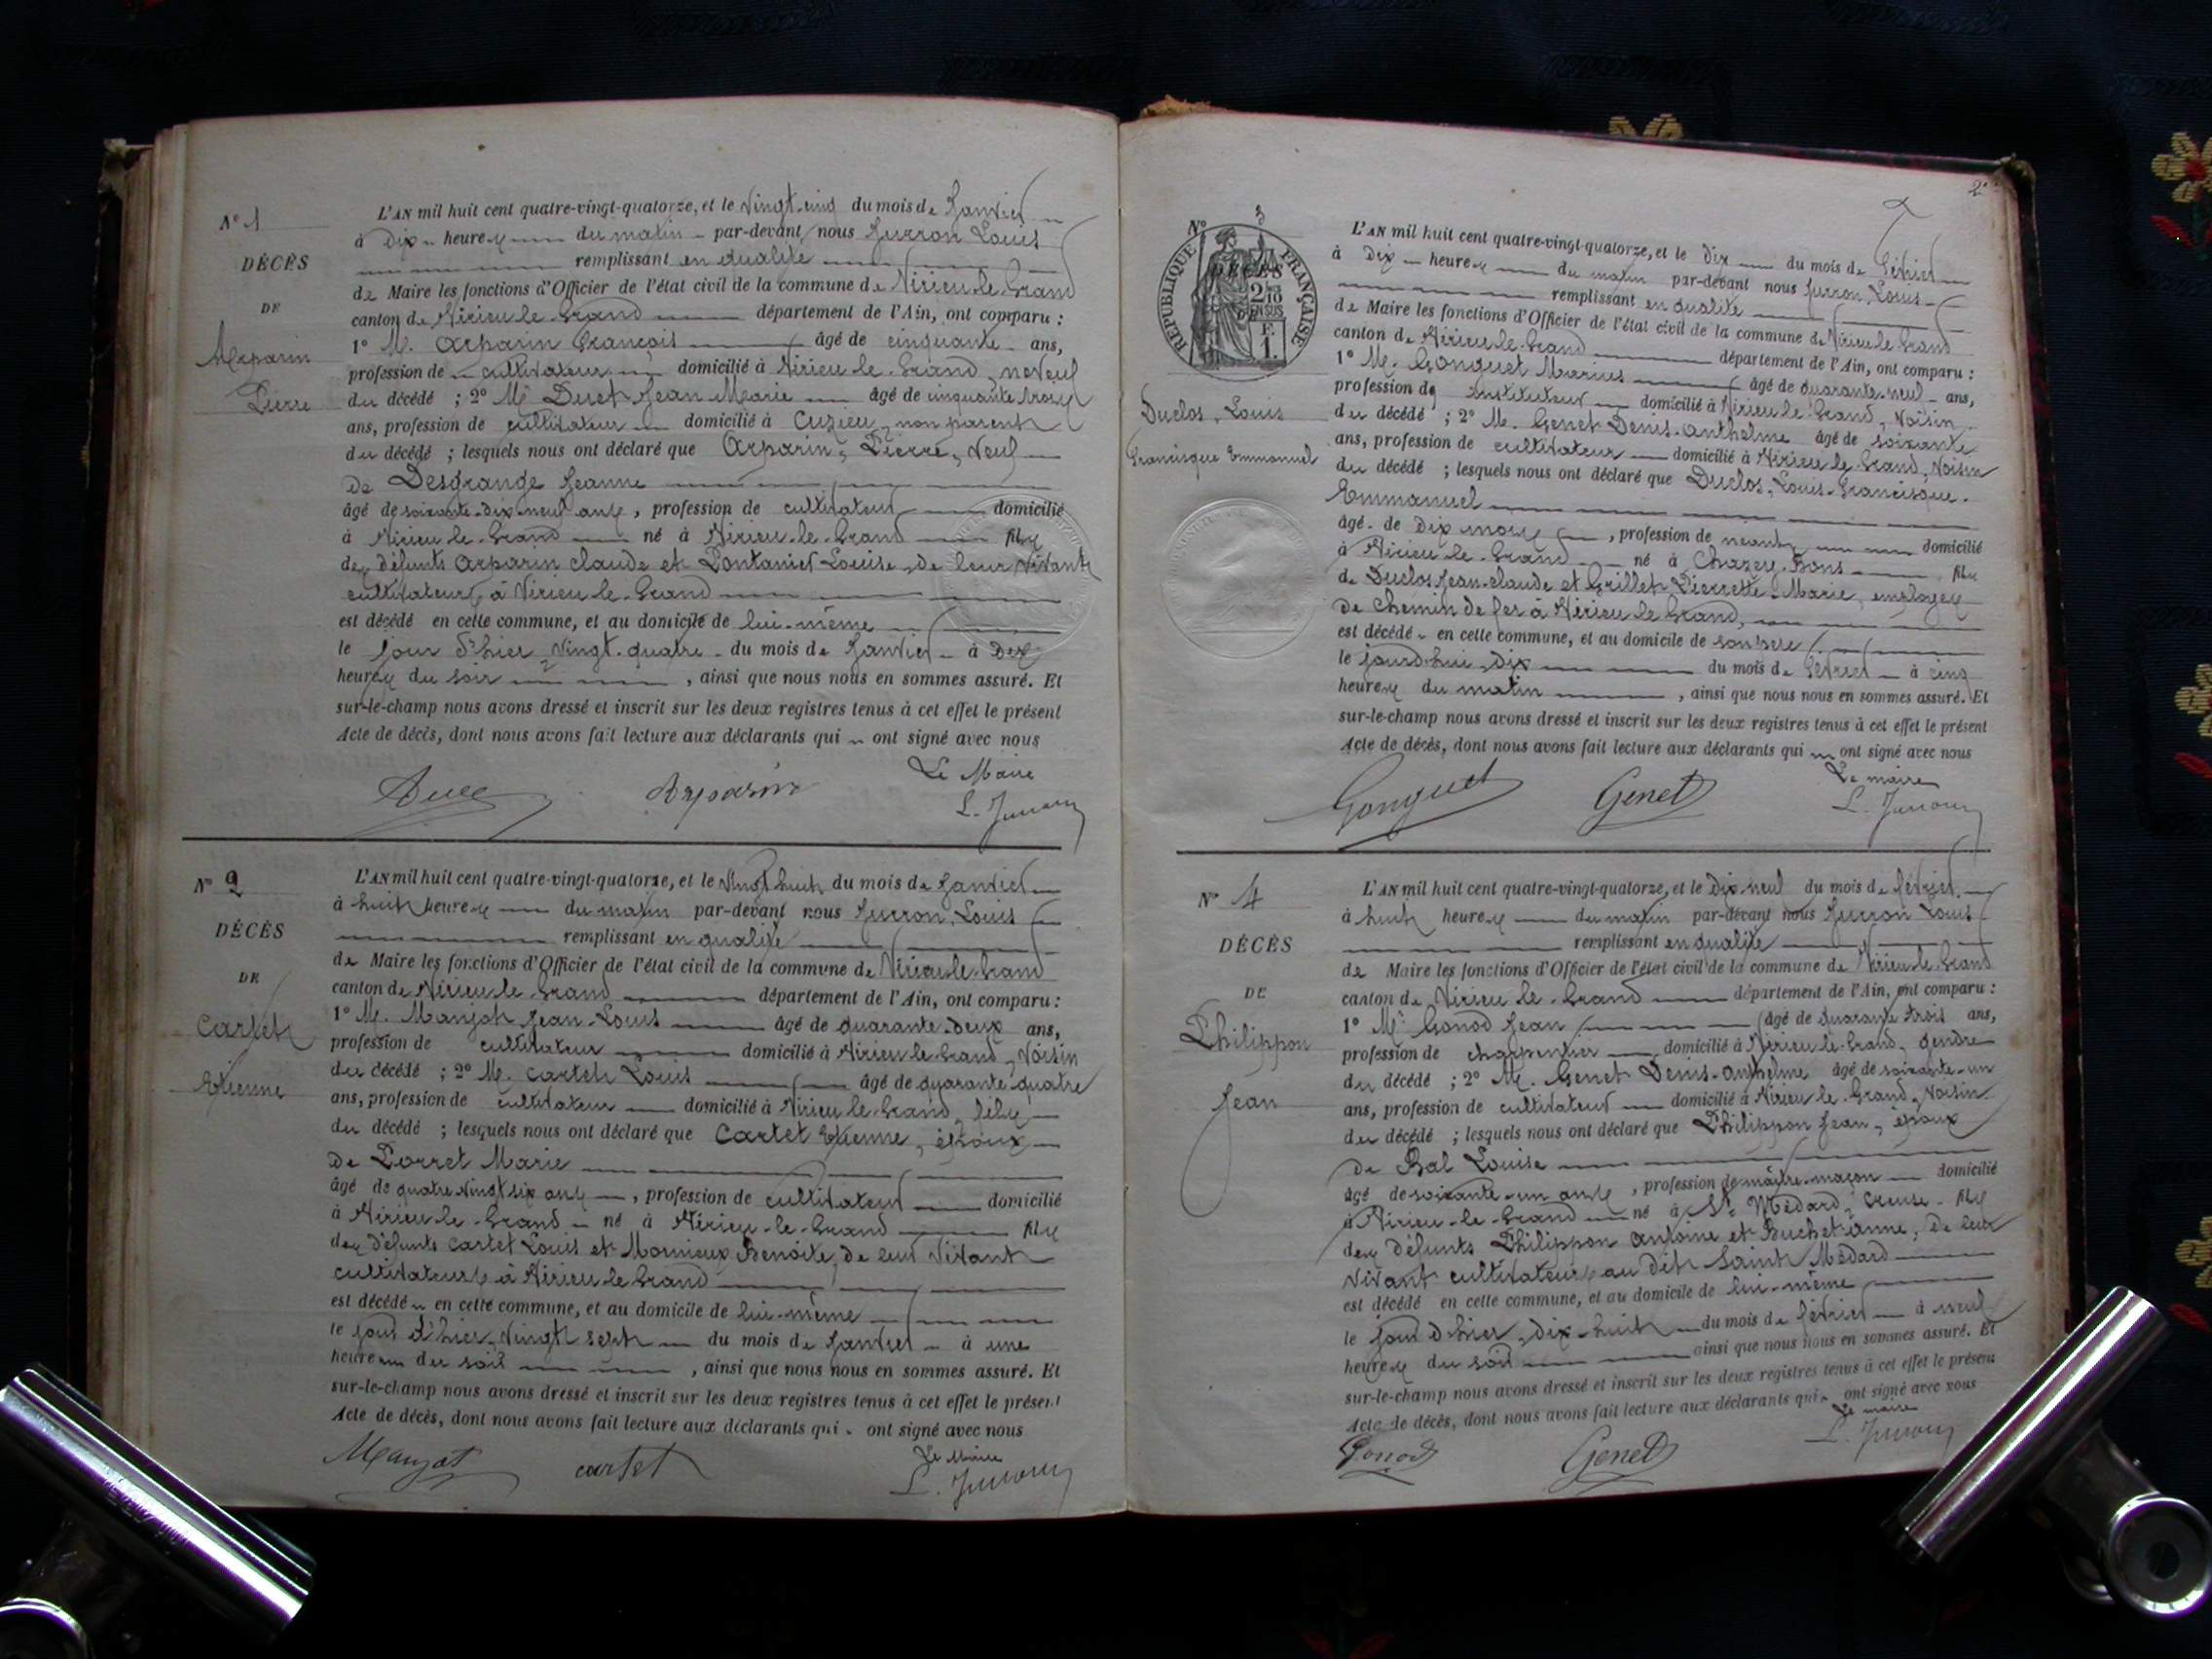 N° 1
DÉCÈS
DE
Arparin
Pierre
L'AN mil huit cent quatre-vingt-quatorze, et le vingt-cinq du mois de Janvier
à Dix heures du matin par-devant nous Jurron Louis
remplissant en qualité
de Maire les fonctions d'Officier de l'état civil de la commune de Virieu-le-Grand
canton de Virieu-le-Grand département de l'Ain, ont comparu :
1° M. Arparin François âgé de cinquante ans,
profession de cultivateur domicilié à Virieu-le-Grand, neveu
du décédé ; 2° M. Ducet Jean Marie âgé de cinquante trois
ans, profession de cultivateur domicilié à Cuzieu, non parent
du décédé ; lesquels nous ont déclaré que Arparin, Pierre, Veuf
de Desgrange Jeanne
âgé de soixante-dix-neuf ans, profession de cultivateur domicilié
à Virieu-le-Grand né à Virieu-le-Grand fils
des défunts Arparin Claude et Pontanier Louise, de leur vivant
cultivateurs à Virieu-le-Grand
est décédé en cette commune, et au domicile de lui-même
le jour d'hier vingt-quatre du mois de Janvier à Dix
heures du soir, ainsi que nous nous en sommes assuré. Et
sur-le-champ nous avons dressé et inscrit sur les deux registres tenus à cet effet le présent
Acte de décès, dont nous avons fait lecture aux déclarants qui ont signé avec nous
Le Maire
Arparin
L. Jurron
N° 2
DÉCÈS
DE
Cartet
Etienne
L'AN mil huit cent quatre-vingt-quatorze, et le vingt huit du mois de Janvier
à huit heures du matin par-devant nous Jurron, Louis
remplissant en qualité
de Maire les fonctions d'Officier de l'état civil de la commune de Virieu-le-Grand
canton de Virieu-le-Grand département de l'Ain, ont comparu :
1° M. Manjot Jean-Louis âgé de quarante-deux ans,
profession de cultivateur domicilié à Virieu-le-Grand, Voisin
du décédé ; 2° M. Cartet Louis âgé de quarante-quatre
ans, profession de cultivateur domicilié à Virieu-le-Grand, fils
du décédé ; lesquels nous ont déclaré que Cartet Etienne, époux
de Porret Marie
âgé de quatre vingt six ans, profession de cultivateur domicilié
à Virieu-le-Grand né à Virieu-le-Grand fils
des défunts Cartet Louis et Monnieux Benoite, de leur vivant
cultivateurs à Virieu-le-Grand
est décédé en cette commune, et au domicile de lui-même
le jour d'hier, vingt sept du mois de Janvier à une
heure du soir, ainsi que nous nous en sommes assuré. Et
sur-le-champ nous avons dressé et inscrit sur les deux registres tenus à cet effet le présent
Acte de décès, dont nous avons fait lecture aux déclarants qui ont signé avec nous
Le Maire
cartet
L. Jurron
2
N° 3
RÉPUBLIQUE FRANÇAISE
DÉCÈS
2/10 EN SUS
F. 1.
Duclos, Louis
Francisque Emmanuel
L'AN mil huit cent quatre-vingt-quatorze, et le dix du mois de Février
à Dix heures du matin par-devant nous Jurron, Louis
remplissant en qualité
de Maire les fonctions d'Officier de l'état civil de la commune de Virieu-le-Grand
canton de Virieu-le-Grand département de l'Ain, ont comparu :
1° M. Gonguet Marius âgé de quarante-neuf ans,
profession de instituteur domicilié à Virieu-le-Grand, Voisin
du décédé ; 2° M. Genet Denis-Anthelme âgé de soixante
ans, profession de cultivateur domicilié à Virieu-le-Grand, Voisin
du décédé ; lesquels nous ont déclaré que Duclos, Louis-Francisque-
Emmanuel
âgé de Dix mois, profession de néant domicilié
à Virieu-le-Grand né à Chazey-Bons fils
de Duclos Jean-Claude et Grillet Pierrette-Marie, employés
de chemin de fer à Virieu le Grand,
est décédé en cette commune, et au domicile de son père
le jourd'hui, dix du mois de Février à cinq
heures du matin, ainsi que nous nous en sommes assuré. Et
sur-le-champ nous avons dressé et inscrit sur les deux registres tenus à cet effet le présent
Acte de décès, dont nous avons fait lecture aux déclarants qui ont signé avec nous
Le maire
Gonguet
Genet
L. Jurron
N° 4
DÉCÈS
DE
Philippon
Jean
L'AN mil huit cent quatre-vingt-quatorze, et le dix-neuf du mois de février
à huit heures du matin par-devant nous Jurron Louis
remplissant en qualité
de Maire les fonctions d'Officier de l'état civil de la commune de Virieu-le-Grand
canton de Virieu-le-Grand département de l'Ain, ont comparu :
1° M. Gonod Jean âgé de quarante trois ans,
profession de charpentier domicilié à Virieu-le-Grand, gendre
du décédé ; 2° M. Genet Denis-Anthelme âgé de soixante-un
ans, profession de cultivateur domicilié à Virieu-le-Grand, Voisin
du décédé ; lesquels nous ont déclaré que Philippon Jean, époux
de Bal Louise
âgé de soixante-un ans, profession de maître-maçon domicilié
à Virieu-le-Grand né à St Médard, Creuse fils
des défunts Philippon Antoine et Buchet Anne, de leur
vivant cultivateurs au dit Saint Médard
est décédé en cette commune, et au domicile de lui-même
le jour d'hier, dix-huit du mois de février à neuf
heures du soir ainsi que nous nous en sommes assuré. Et
sur-le-champ nous avons dressé et inscrit sur les deux registres tenus à cet effet le présent
Acte de décès, dont nous avons fait lecture aux déclarants qui ont signé avec nous
Le maire
Gonod
Genet
L. Jurron